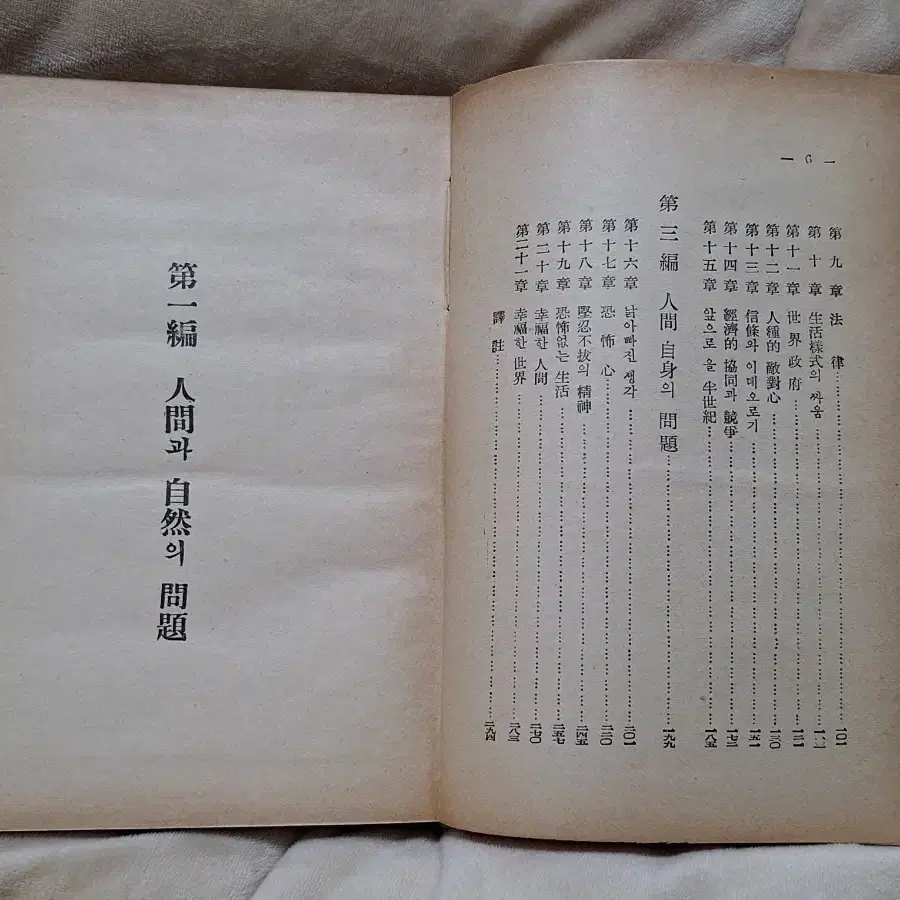 — 6 —
第九章 法律 一〇一
第十章 生活樣式의 싸움
第十一章 世界政府
第十二章 人種的 敵對心 一三〇
第十三章 信條와 이데오로기 一五一
第十四章 經濟的 協同과 競爭
第十五章 앞으로 올 半世紀 一八五
第三編 人間 自身의 問題 一九九
第十六章 낡아빠진 생각 二〇一
第十七章 恐怖心
第十八章 堅忍不拔의 精神 二四五
第十九章 恐怖없는 生活 二五七
第二十章 幸福한 人間 二七〇
第二十一章 幸福한 世界 二八三
譯註 二九四
第一編 人間과 自然의 問題